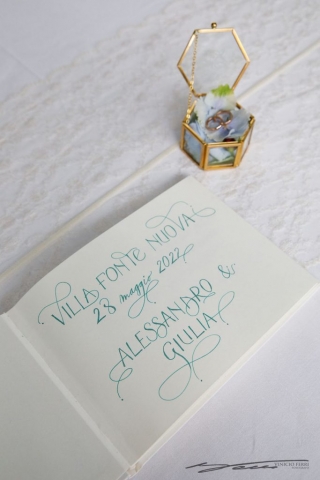 VILLA FONTE NUOVA
28 maggio 2022
ALESSANDRO &
GIULIA